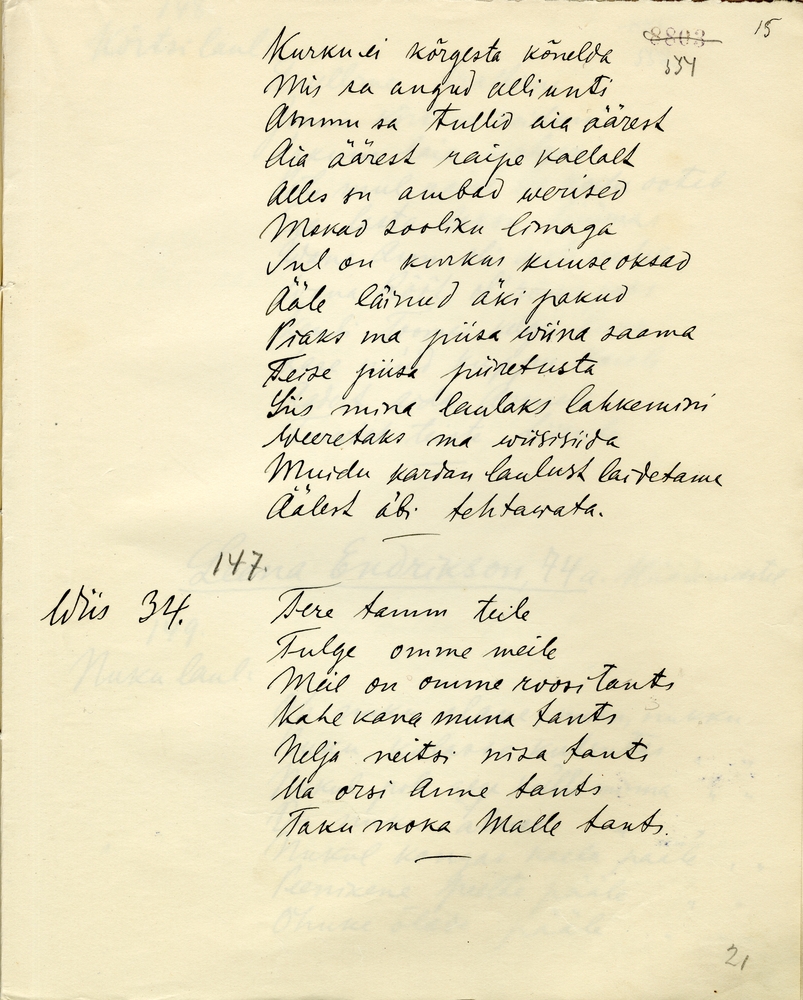 15
8803
554
Kurku ei kõrgesta kõnelda
Mis sa angud alli unti
Ammu sa tullid aia äärest
Aia äärest raipe kaelalt
Alles on ambad werised
Mokad sooliku limaga
Sul on kurkus kuuse oksad
Ääle läinud äki pakud
Piaks ma piisa wiina saama
Teise piisa piiretusta
Siis mina laulaks lahkemini
Weeretaks ma wiisisiida
Muidu kardan laulust laidetama
Äälest äbi tehtawata.
147.
Wiis 34.
Tere tamm teile
Tulge omme meile
Meil on omme roosi tants
Kahe kana muna tants
Nelja neitsi nisa tants
Ua orsi Anne tants
Taku moka Malle tants.
21